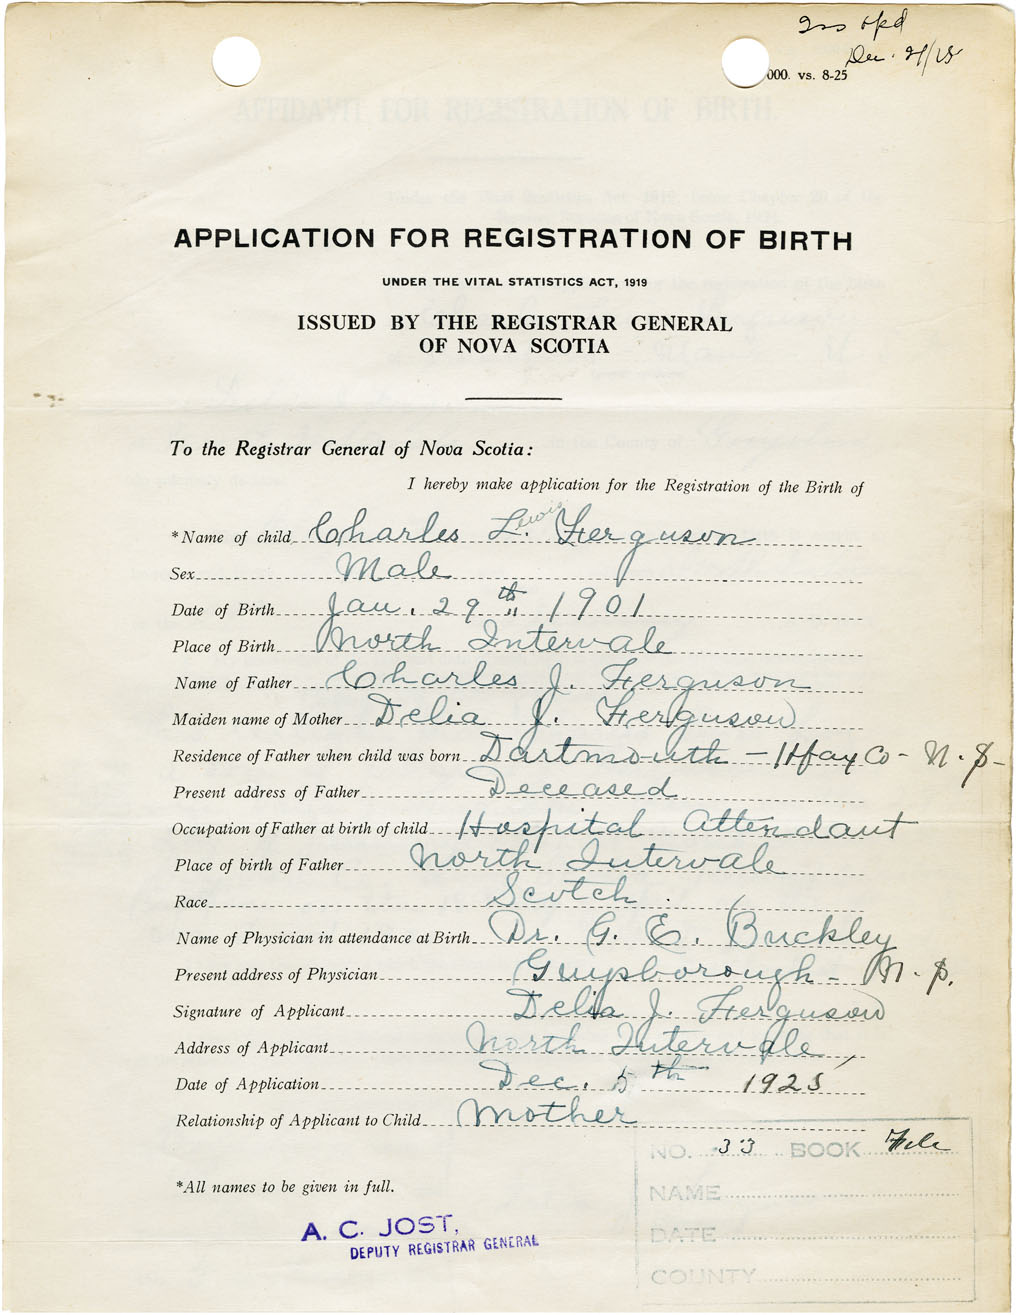 Dec. 21/25
000. vs. 8-25
APPLICATION FOR REGISTRATION OF BIRTH
UNDER THE VITAL STATISTICS ACT, 1919
ISSUED BY THE REGISTRAR GENERAL
OF NOVA SCOTIA
To the Registrar General of Nova Scotia:
I hereby make application for the Registration of the Birth of
*Name of child Charles L. Lewis Ferguson
Sex Male
Date of Birth Jan. 29th 1901
Place of Birth North Intervale
Name of Father Charles J. Ferguson
Maiden name of Mother Delia J. Ferguson
Residence of Father when child was born Dartmouth - Hfax Co - N.S-
Present address of Father Deceased
Occupation of Father at birth of child Hospital Attendant
Place of birth of Father North Intervale
Race Scotch.
Name of Physician in attendance at Birth Dr. G. E. Buckley
Present address of Physician Guysborough - N.S.
Signature of Applicant Delia J. Ferguson
Address of Applicant North Intervale,
Date of Application Dec. 5th 1925
Relationship of Applicant to Child Mother
NO. 33 BOOK File
NAME
*All names to be given in full.
A. C. JOST,
DEPUTY REGISTRAR GENERAL
DATE
COUNTY